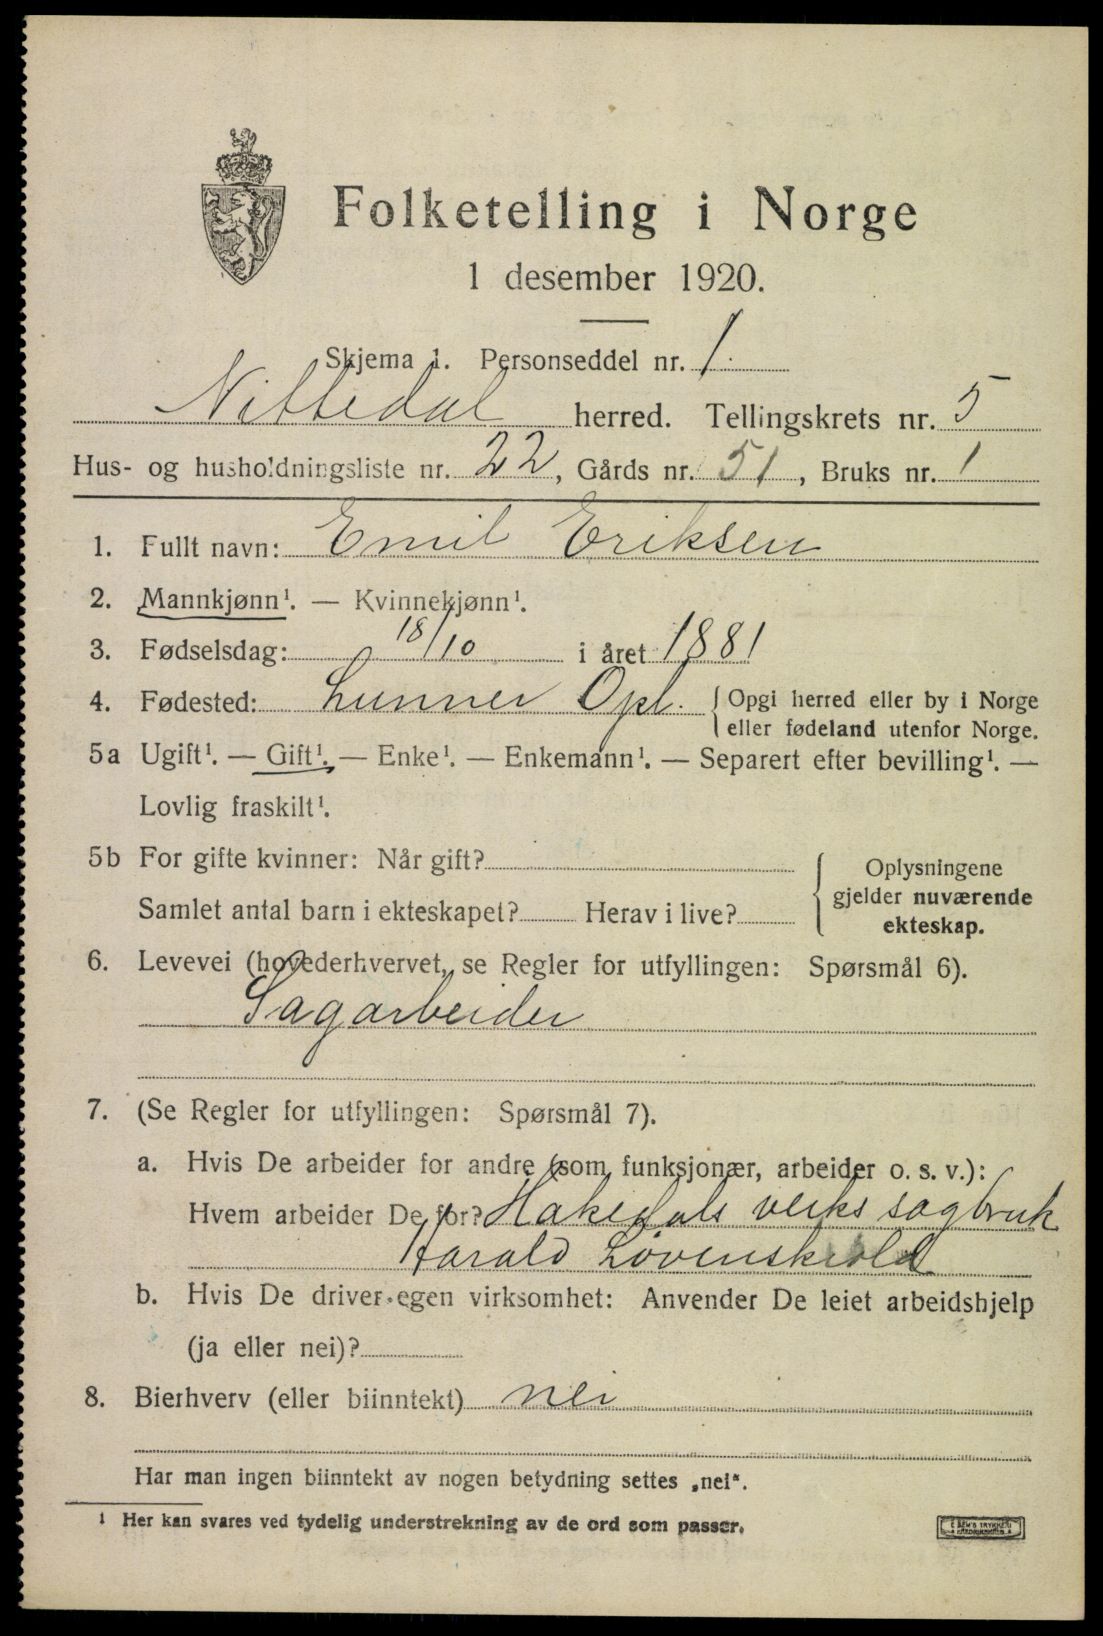 Folketelling i Norge
1 desember 1920.
Skjema 1. Personseddel nr. 1.
Nittedal herred. Tellingskrets nr. 5
Hus- og husholdningsliste nr. 22, Gårds nr. 51, Bruks nr. 1
1. Fullt navn: Emil Eriksen
2. Mannkjønn¹. — Kvinnekjønn¹.
3. Fødselsdag: 18/10 i året 1881
4. Fødested: Lunner Opl. { Opgi herred eller by i Norge
eller fødeland utenfor Norge.
5a Ugift¹. — Gift¹. — Enke¹. — Enkemann¹. — Separert efter bevilling¹. —
Lovlig fraskilt¹.
5b For gifte kvinner: Når gift?
Samlet antal barn i ekteskapet? Herav i live?
Oplysningene
gjelder nuværende
ekteskap.
6. Levevei (hovederhvervet, se Regler for utfyllingen: Spørsmål 6).
Sagarbeider
7. (Se Regler for utfyllingen: Spørsmål 7).
a. Hvis De arbeider for andre (som funksjonær, arbeider o. s. v.):
Hvem arbeider De for? Hakedals verks sagbruk
Harald Løvenskiold
b. Hvis De driver egen virksomhet: Anvender De leiet arbeidshjelp
(ja eller nei)?
8. Bierhverv (eller biinntekt) nei
Har man ingen biinntekt av nogen betydning settes „nei“.
¹ Her kan svares ved tydelig understrekning av de ord som passer.